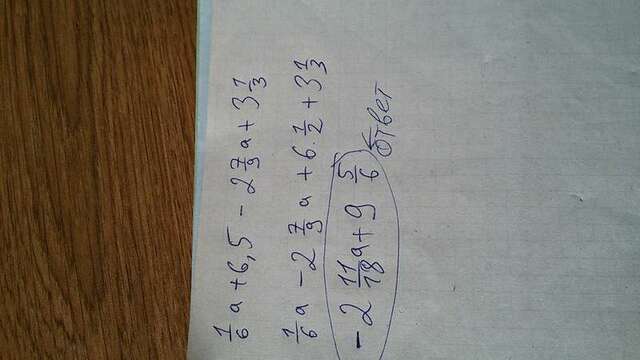 1/6 a + 6,5 - 2 7/9 a + 3 1/3
1/6 a - 2 7/9 a + 6 · 1/2 + 3 1/3
- 2 11/18 a + 9 5/6
Ответ